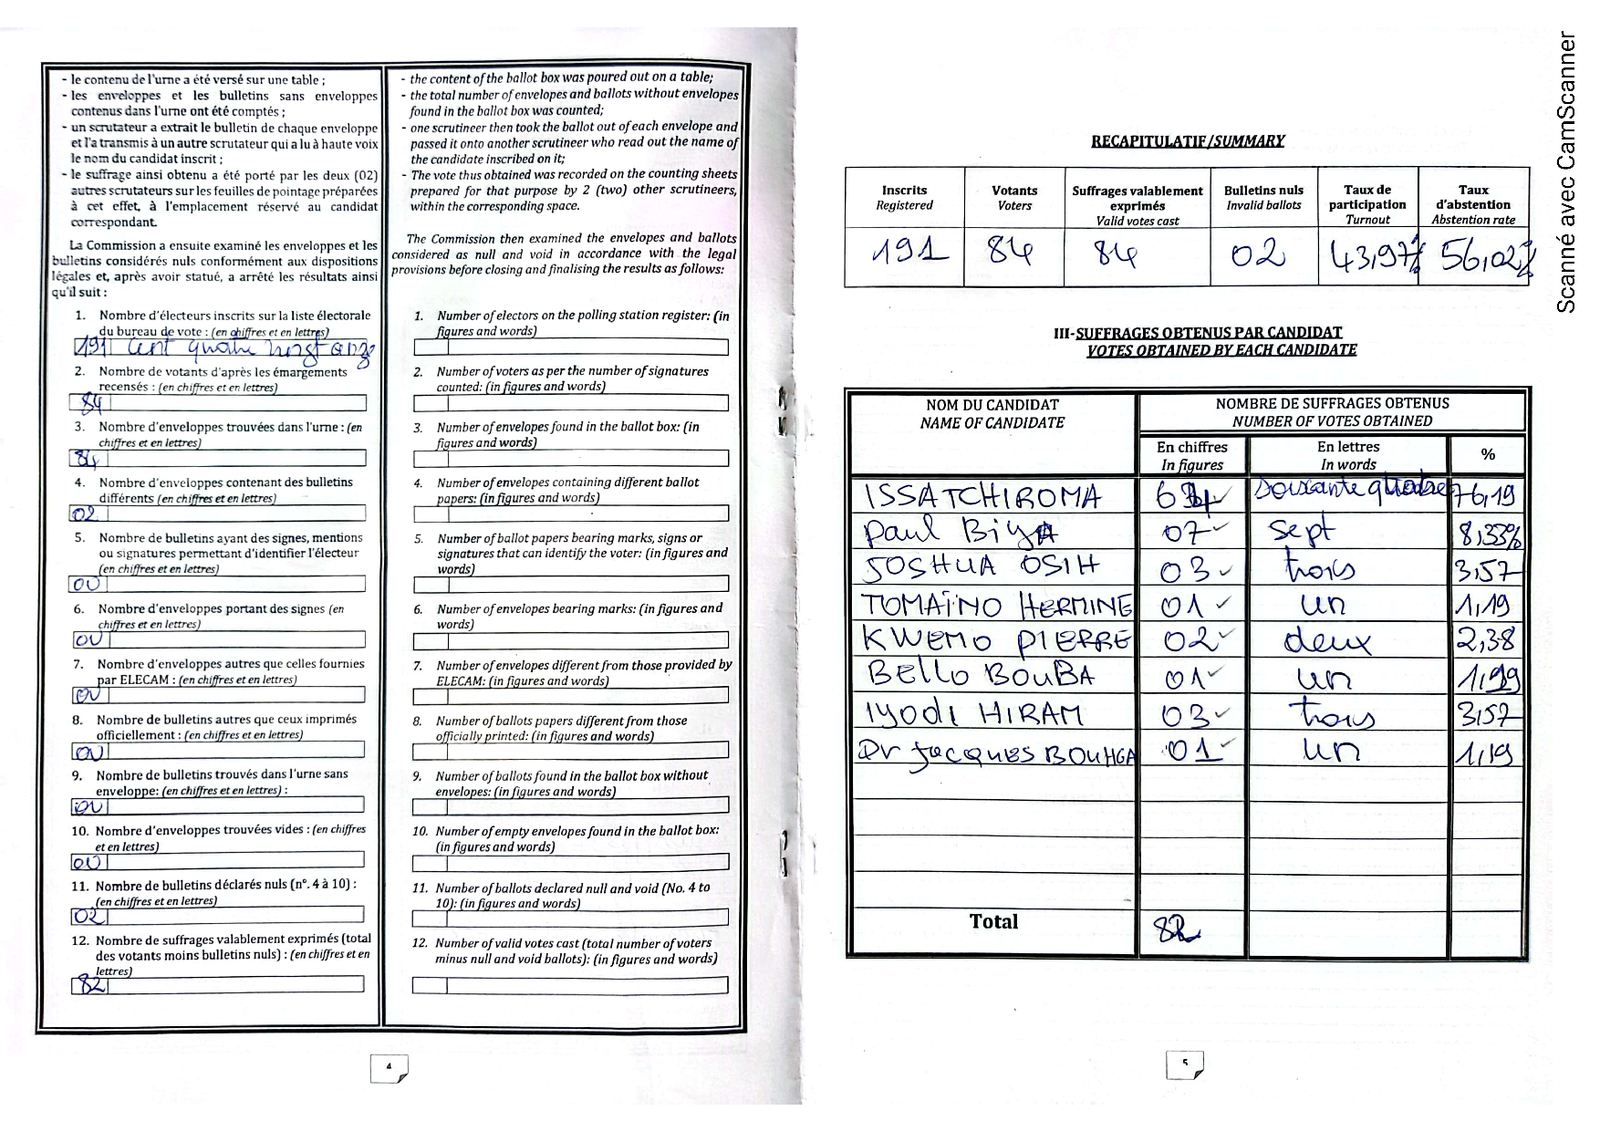 - le contenu de l'urne a été versé sur une table ;
- les enveloppes et les bulletins sans enveloppes
contenus dans l'urne ont été comptés ;
- un scrutateur a extrait le bulletin de chaque enveloppe
et l'a transmis à un autre scrutateur qui a lu à haute voix
le nom du candidat inscrit ;
- le suffrage ainsi obtenu a été porté par les deux (02)
autres scrutateurs sur les feuilles de pointage préparées
à cet effet, à l'emplacement réservé au candidat
correspondant.
La Commission a ensuite examiné les enveloppes et les
bulletins considérés nuls conformément aux dispositions
légales et, après avoir statué, a arrêté les résultats ainsi
qu'il suit :
1. Nombre d'électeurs inscrits sur la liste électorale
du bureau de vote : (en chiffres et en lettres)
191 cent quatre vingt onze
2. Nombre de votants d'après les émargements
recensés : (en chiffres et en lettres)
84
3. Nombre d'enveloppes trouvées dans l'urne : (en
chiffres et en lettres)
84
4. Nombre d'enveloppes contenant des bulletins
différents (en chiffres et en lettres)
02
5. Nombre de bulletins ayant des signes, mentions
ou signatures permettant d'identifier l'électeur
(en chiffres et en lettres)
00
6. Nombre d'enveloppes portant des signes (en
chiffres et en lettres)
00
7. Nombre d'enveloppes autres que celles fournies
par ELECAM : (en chiffres et en lettres)
00
8. Nombre de bulletins autres que ceux imprimés
officiellement : (en chiffres et en lettres)
00
9. Nombre de bulletins trouvés dans l'urne sans
enveloppe: (en chiffres et en lettres) :
00
10. Nombre d'enveloppes trouvées vides : (en chiffres
et en lettres)
00
11. Nombre de bulletins déclarés nuls (n°. 4 à 10) :
(en chiffres et en lettres)
02
12. Nombre de suffrages valablement exprimés (total
des votants moins bulletins nuls) : (en chiffres et en
lettres)
82
- the content of the ballot box was poured out on a table;
- the total number of envelopes and ballots without envelopes
found in the ballot box was counted;
- one scrutineer then took the ballot out of each envelope and
passed it onto another scrutineer who read out the name of
the candidate inscribed on it;
- The vote thus obtained was recorded on the counting sheets
prepared for that purpose by 2 (two) other scrutineers,
within the corresponding space.
The Commission then examined the envelopes and ballots
considered as null and void in accordance with the legal
provisions before closing and finalising the results as follows:
1. Number of electors on the polling station register: (in
figures and words)
2. Number of voters as per the number of signatures
counted: (in figures and words)
3. Number of envelopes found in the ballot box: (in
figures and words)
4. Number of envelopes containing different ballot
papers: (in figures and words)
5. Number of ballot papers bearing marks, signs or
signatures that can identify the voter: (in figures and
words)
6. Number of envelopes bearing marks: (in figures and
words)
7. Number of envelopes different from those provided by
ELECAM: (in figures and words)
8. Number of ballots papers different from those
officially printed: (in figures and words)
9. Number of ballots found in the ballot box without
envelopes: (in figures and words)
10. Number of empty envelopes found in the ballot box:
(in figures and words)
11. Number of ballots declared null and void (No. 4 to
10): (in figures and words)
12. Number of valid votes cast (total number of voters
minus null and void ballots): (in figures and words)
4
RECAPITULATIF/SUMMARY
Inscrits Registered | Votants Voters | Suffrages valablement exprimés Valid votes cast | Bulletins nuls Invalid ballots | Taux de participation Turnout | Taux d'abstention Abstention rate
191 84 84 02 43,97% 56,02%
III-SUFFRAGES OBTENUS PAR CANDIDAT
VOTES OBTAINED BY EACH CANDIDATE
NOM DU CANDIDAT NOMBRE DE SUFFRAGES OBTENUS
NAME OF CANDIDATE NUMBER OF VOTES OBTAINED
En chiffres En lettres %
In figures In words
ISSA TCHIROMA 64 soixante quatre 76,19
Paul BiyA 07 sept 8,33%
JOSHUA OSIH 03 trois 3,57
TOMAÏNO HERMINE 01 un 1,19
KWEMO PIERRE 02 deux 2,38
BELLO BOUBA 01 un 1,19
IYODI HIRAM 03 trois 3,57
Dr Jacques BOUHGA 01 un 1,19
Total 82
5
Scanné avec CamScanner